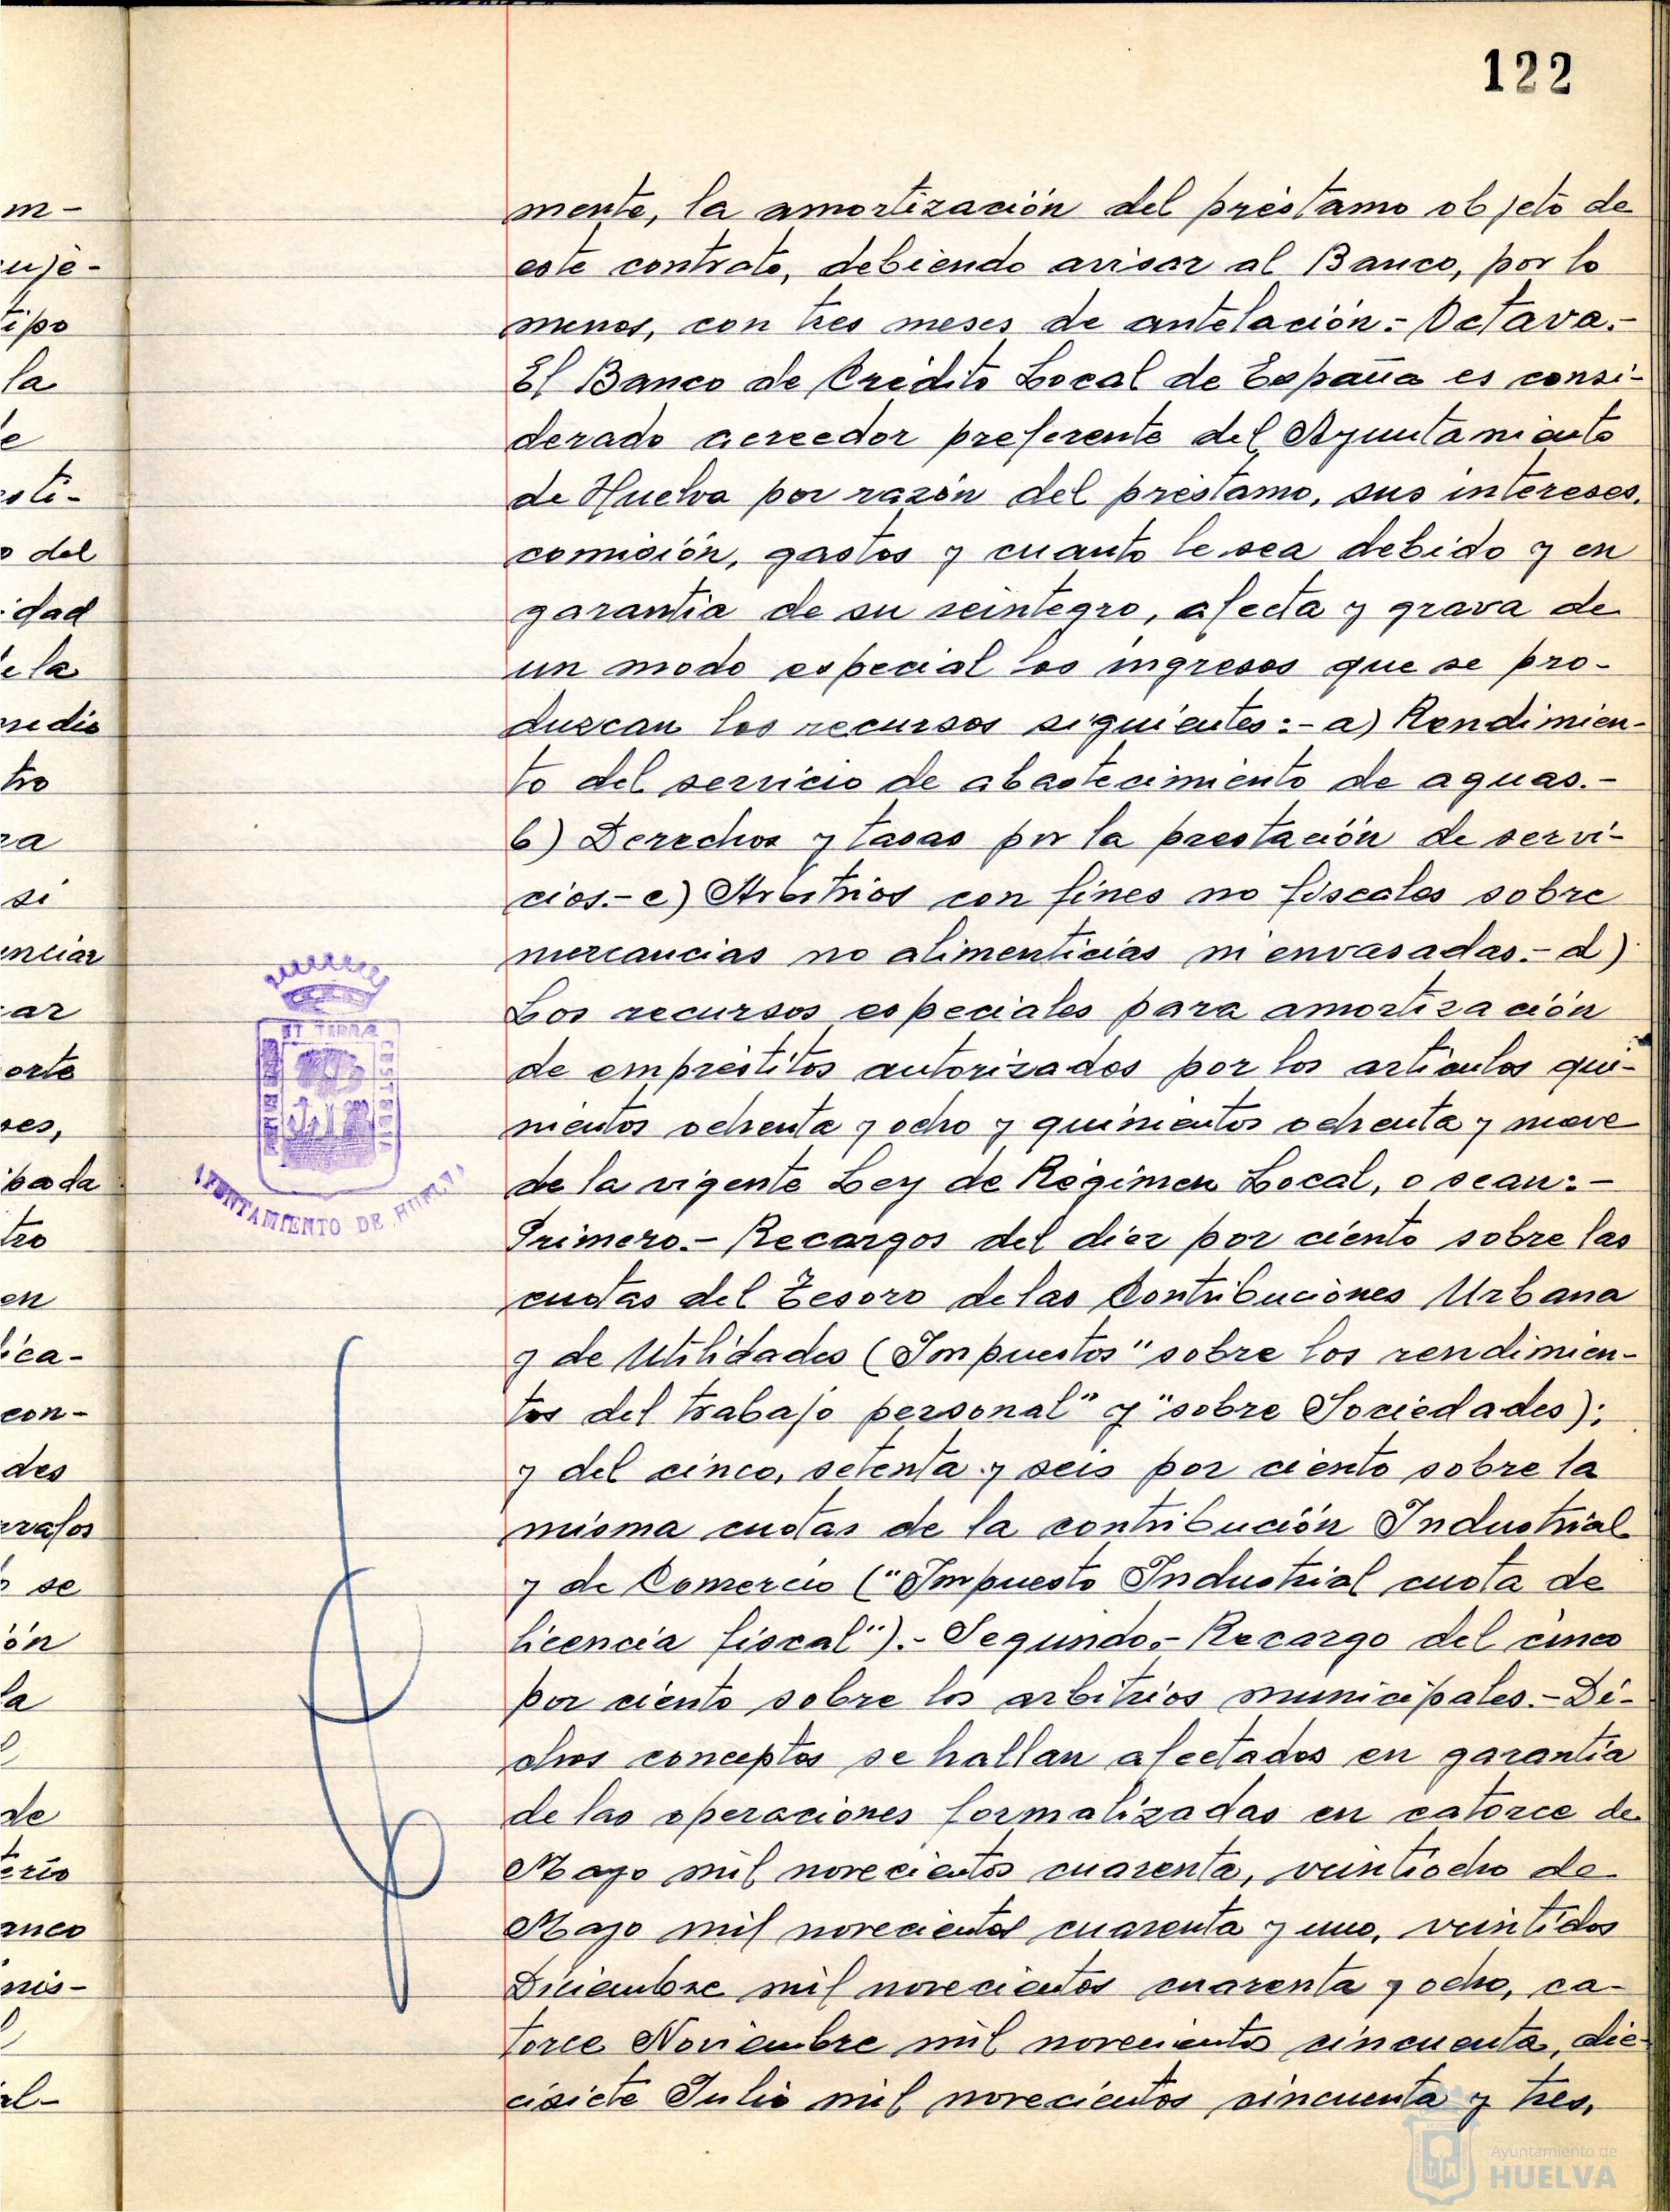 122
mente, la amortización del préstamo objeto de
este contrato, debiendo avisar al Banco, por lo
menos, con tres meses de antelación.- Octava.-
El Banco de Crédito Local de España es consi-
derado acreedor preferente del Ayuntamiento
de Huelva por razón del préstamo, sus intereses,
comisión, gastos y cuanto le sea debido y en
garantía de su reintegro, afecta y grava de
un modo especial los ingresos que se pro-
duzcan los recursos siguientes:- a) Rendimien-
to del servicio de abastecimiento de aguas.-
b) Derechos y tasas por la prestación de servi-
cios.- c) Arbitrios con fines no fiscales sobre
mercancias no alimenticias ni envasadas.- d)
Los recursos especiales para amortización
de empréstitos autorizados por los artículos qui-
nientos ochenta y ocho y quinientos ochenta y nueve
de la vigente Ley de Régimen Local, o sean:-
Primero.- Recargos del diez por ciento sobre las
cuotas del Tesoro de las Contribuciones Urbana
y de Utilidades (Impuestos" sobre los rendimien-
tos del trabajo personal" y "sobre Sociedades);
y del cinco, setenta y seis por ciento sobre la
misma cuotas de la contribución Industrial
y de Comercio ("Impuesto Industrial cuota de
licencia fiscal").- Segundo.- Recargo del cinco
por ciento sobre los arbitrios municipales.- Di-
chos conceptos se hallan afectados en garantía
de las operaciones formalizadas en catorce de
Mayo mil novecientos cuarenta, veintiocho de
Mayo mil novecientos cuarenta y uno, veintidos
Diciembre mil novecientos cuarenta y ocho, ca-
torce Noviembre mil novecientos cincuenta, die-
cisiete Julio mil novecientos cincuenta y tres,
m-
uje-
tipo
la
e
sti-
o del
idad
e la
medio
tro
ra
si
nciar
ar
orte
res,
pada
tro
en
ica-
con-
des
rrafos
se
ón
la
de
erio
anco
nis-
al-
ET TERRA
AYUNTAMIENTO DE HUELVA
Ayuntamiento de
HUELVA